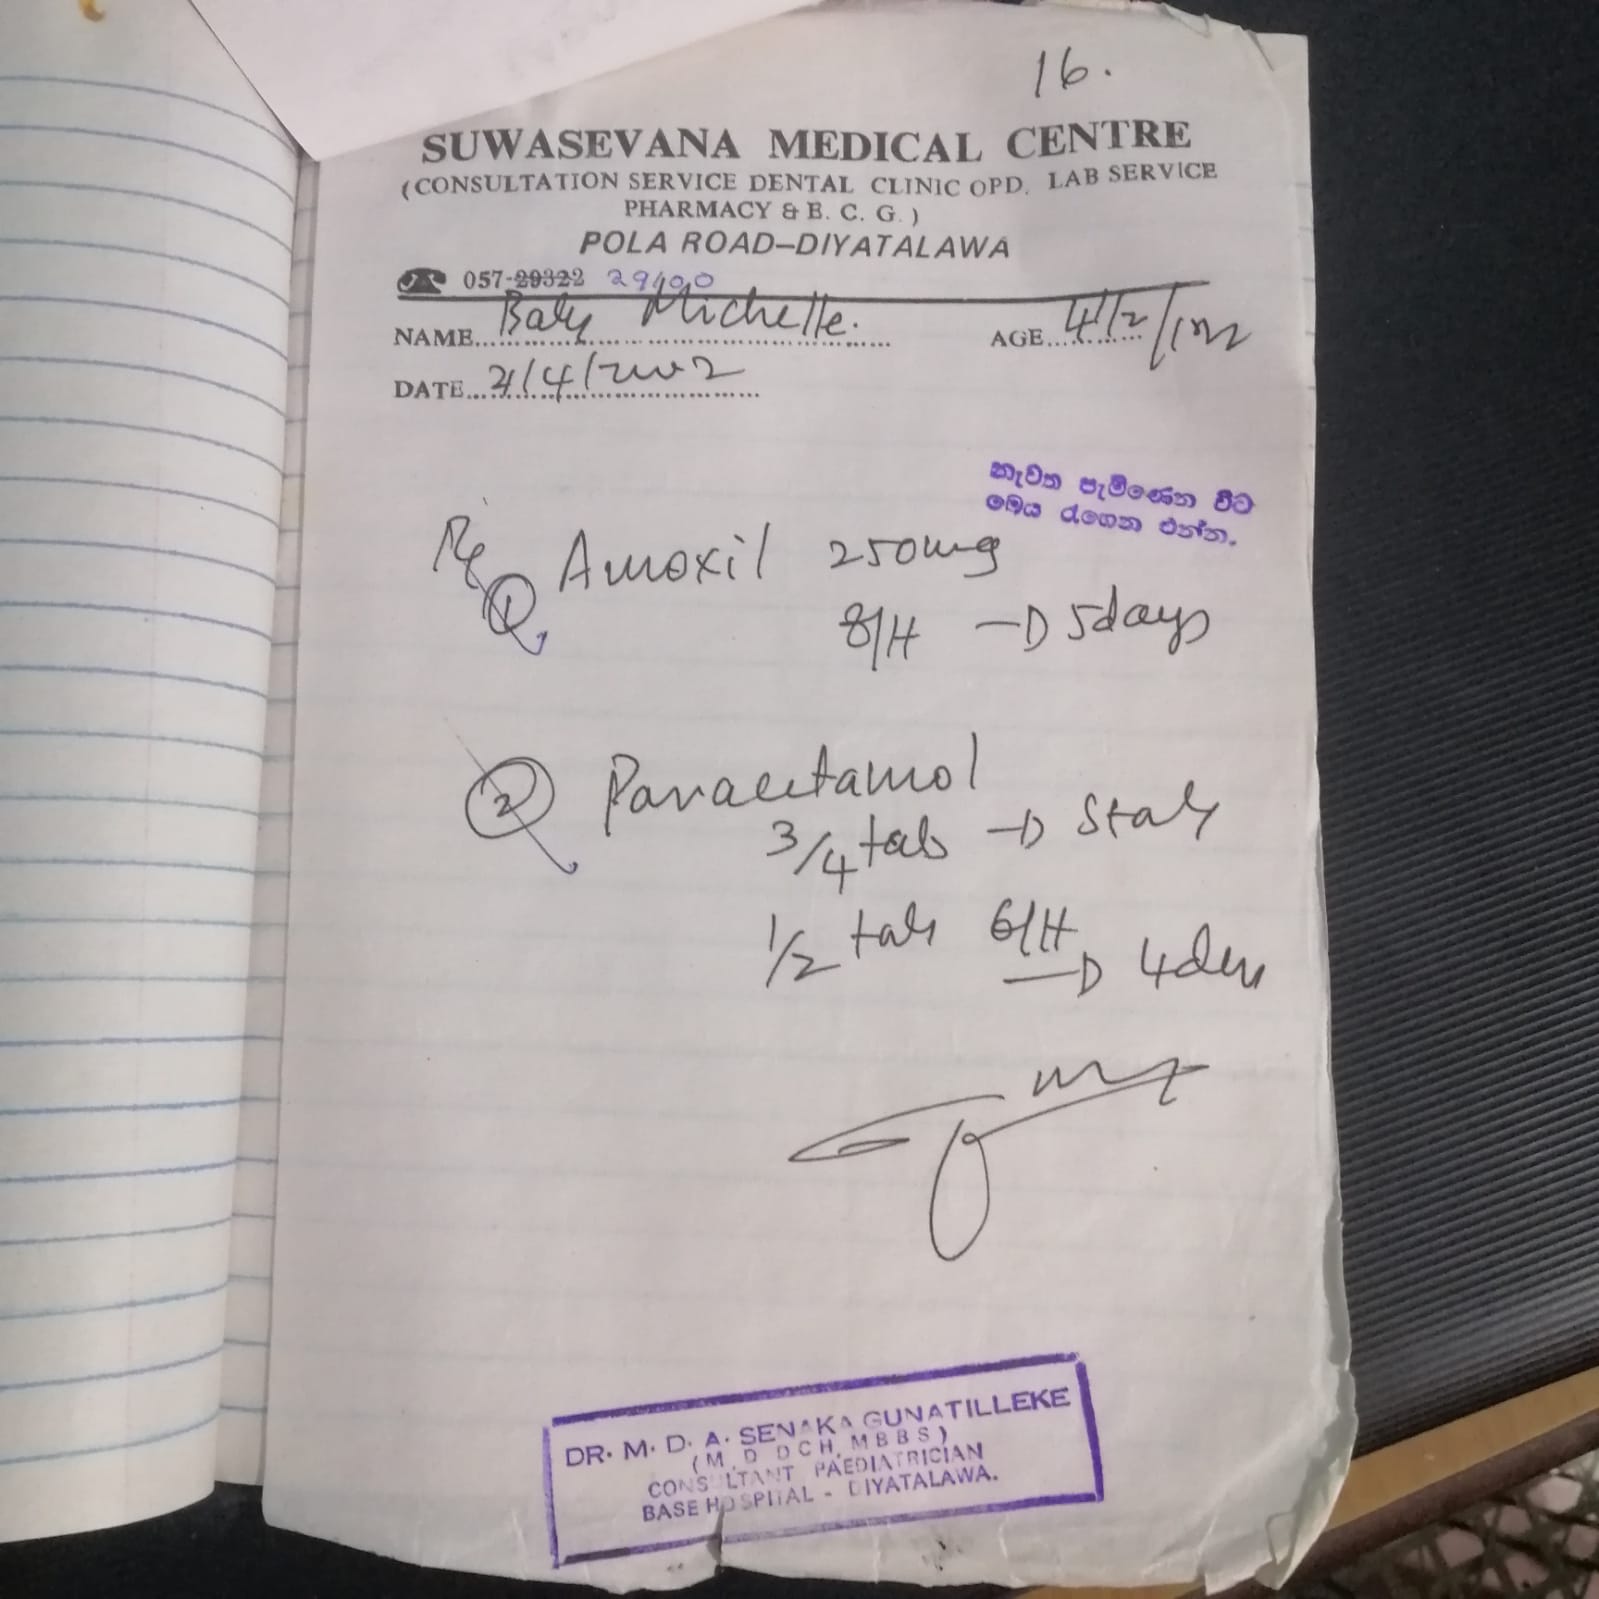 16.
SUWASEVANA MEDICAL CENTRE
(CONSULTATION SERVICE DENTAL CLINIC OPD. LAB SERVICE
PHARMACY & E. C. G. )
POLA ROAD–DIYATALAWA
057-29322 29400
NAME Baby Michelle. AGE 4 1/2
DATE /4/2002
නැවත පැමිණෙන විට
මෙය රැගෙන එන්න.
Rx
1 Amoxil 250mg
8/H → 5days
2 Paracetamol
3/4 tab → Stat
1/2 tab 6/H
→ 4days
DR. M. D. A. SENAKA GUNATILLEKE
(M. D. DCH, MBBS)
CONSULTANT PAEDIATRICIAN
BASE HOSPITAL - DIYATALAWA.